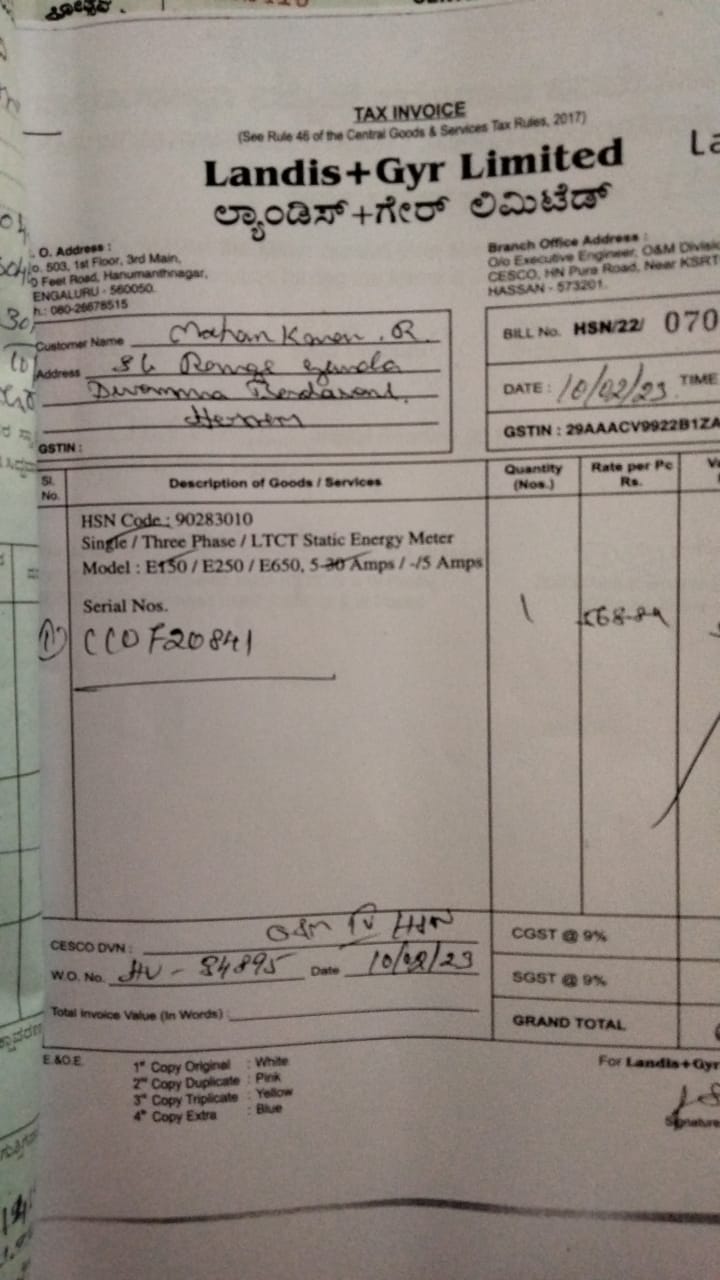 TAX INVOICE
(See Rule 46 of the Central Goods & Services Tax Rules, 2017)
Landis+Gyr Limited
ಲ್ಯಾಂಡಿಸ್+ಗೇರ್ ಲಿಮಿಟೆಡ್
La
. O. Address :
o. 503, 1st Floor, 3rd Main,
0 Feet Road, Hanumanthnagar,
ENGALURU - 560050.
h.: 080-26678515
Branch Office Address :
O/o Executive Engineer, O&M Divisi
CESCO, HN Pura Road, Near KSRT
HASSAN - 573201.
Customer Name Mohan R.
Address
GSTIN :
BILL No. HSN/22/ 070
DATE : 10/02/23 TIME
GSTIN : 29AAACV9922B1ZA
Sl. No.
Description of Goods / Services
Quantity (Nos.)
Rate per Pc Rs.
HSN Code : 90283010
Single / Three Phase / LTCT Static Energy Meter
Model : E150 / E250 / E650, 5-30 Amps / -/5 Amps
Serial Nos.
1) CCOF20841
1
568-
CESCO DVN : HSN
W.O. No. 84895 Date 10/02/23
Total Invoice Value (In Words) :
CGST @ 9%
SGST @ 9%
GRAND TOTAL
E.&O.E.
1st Copy Original : White
2nd Copy Duplicate : Pink
3rd Copy Triplicate : Yellow
4th Copy Extra : Blue
For Landis+Gyr
Signature